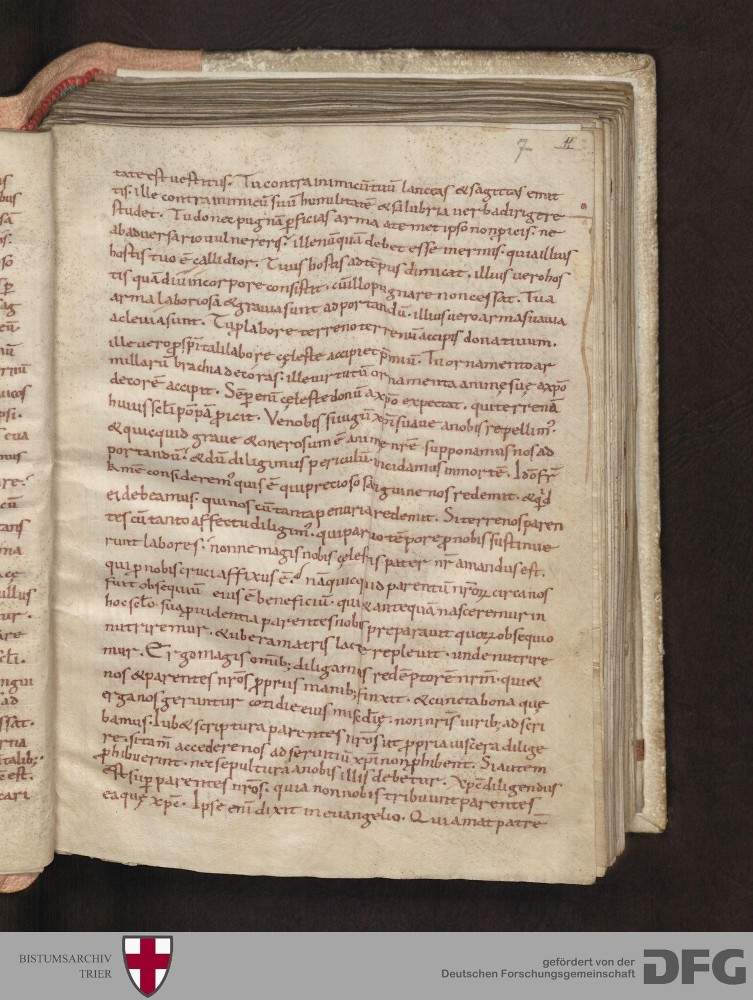 7 11
tate est uestitus. Tu contra inimicũ tuũ lanceas & sagittas emit
tis. ille contra inimicũ suũ humilitatẽ & salubria uerba dirigere
studet. Tu donec pugnã ꝑficias arma a temet ipso non ꝓicis. ne
ab aduersario uulnereris. ille nũquã debet esse inermis. quia illius
hostis tuo ẽ callidior. Tuus hostis ad tẽpus dimicat. illius uero hos
tis quã diu in corpore consistit. cũ illo pugnare non cessat. Tua
arma laboriosa & grauia sunt ad portandũ. illius uero arma suauia
ac leuia sunt. Tu ꝓ labore terreno terrenũ accipis donatiuum.
ille uero ꝓ spĩtali labore cęleste accipiet p̃miũ. Tu ornamento ar
millarũ brachia decoras. ille uirtutũ ornamenta animę suę a xp̃o
decorẽ accipit. Sẽꝑ enĩ cęleste donũ a xp̃o expectat. qui terrenã
huius sc̃li põpã ꝓicit. Ve nobis si iugũ xp̃i suaue a nobis repellim᷒.
& quicquid graue & onerosum ẽ animę nr̃ę supponamus nos ad
portandũ. & dũ diligimus periculũ. incidamus in mortẽ. Ido fr̃
k̃mẽ considerem᷒ quis ẽ qui precioso sanguine nos redemit. & qͥd
ei debeamus. qui nos cũ tanta penuria redemit. Si terrenos paren
tes cũ tanto affectu diligim᷒. qui paruo tẽpore ꝓ nobis sustinue
runt labores. nonne magis nobis cęlestis pater nr̃ amandus est.
qui ꝓ nobis cruci affixus ẽ. nã quicquid parentũ nr̃oꝝ circa nos
fuit obsequiũ eius ẽ beneficiũ. qui & antequã nasceremur in
hoc sc̃lo. sua ꝓuidentia parentes nobis preparauit quoꝝ obsequio
nutriremur. & ubera matris lacte repleuit. unde nutrire
mur. Ergo magis om̃ib; diligamus redẽptorẽ nr̃m. qui &
nos & parentes nr̃os ꝓpriis manib; finxit. & cuncta bona quę
erga nos geruntur cotidie eius mis̃cdię. non nr̃is uirib; adscri
bamus. Iub& scriptura parentes nr̃os ut ꝓpria uiscera dilige
re. si tam̃ accedere nos ad seruitiũ xp̃i non ꝓhibent. Si autem
ꝓhibuerint. nec sepultura a nobis illis debetur. Xp̃c diligendus
est suꝑ parentes nr̃os. quia non nobis tribuunt parentes
ea quę xp̃c. Ipse enĩ dixit in euangelio. Qui amat patrẽ
BISTUMSARCHIV
TRIER
gefördert von der
Deutschen Forschungsgemeinschaft
DFG